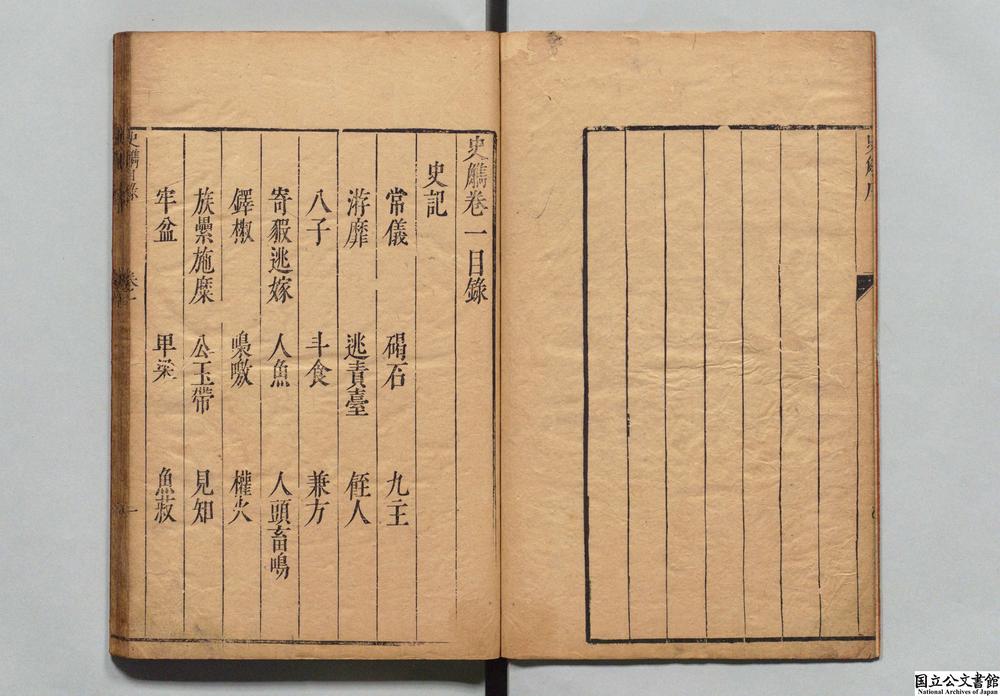 史觿卷一目錄
史記
常儀 碣石 九主
游靡 逃責臺 㑌人
八子 斗食 兼方
寄豭逃嫁 人魚 人頭畜鳴
鐸椒 嘄噭 權火
族纍施糜 公玉帶 見知
牢盆 甲梁 魚菽
史觿目錄 卷一 一
国立公文書館
National Archives of Japan